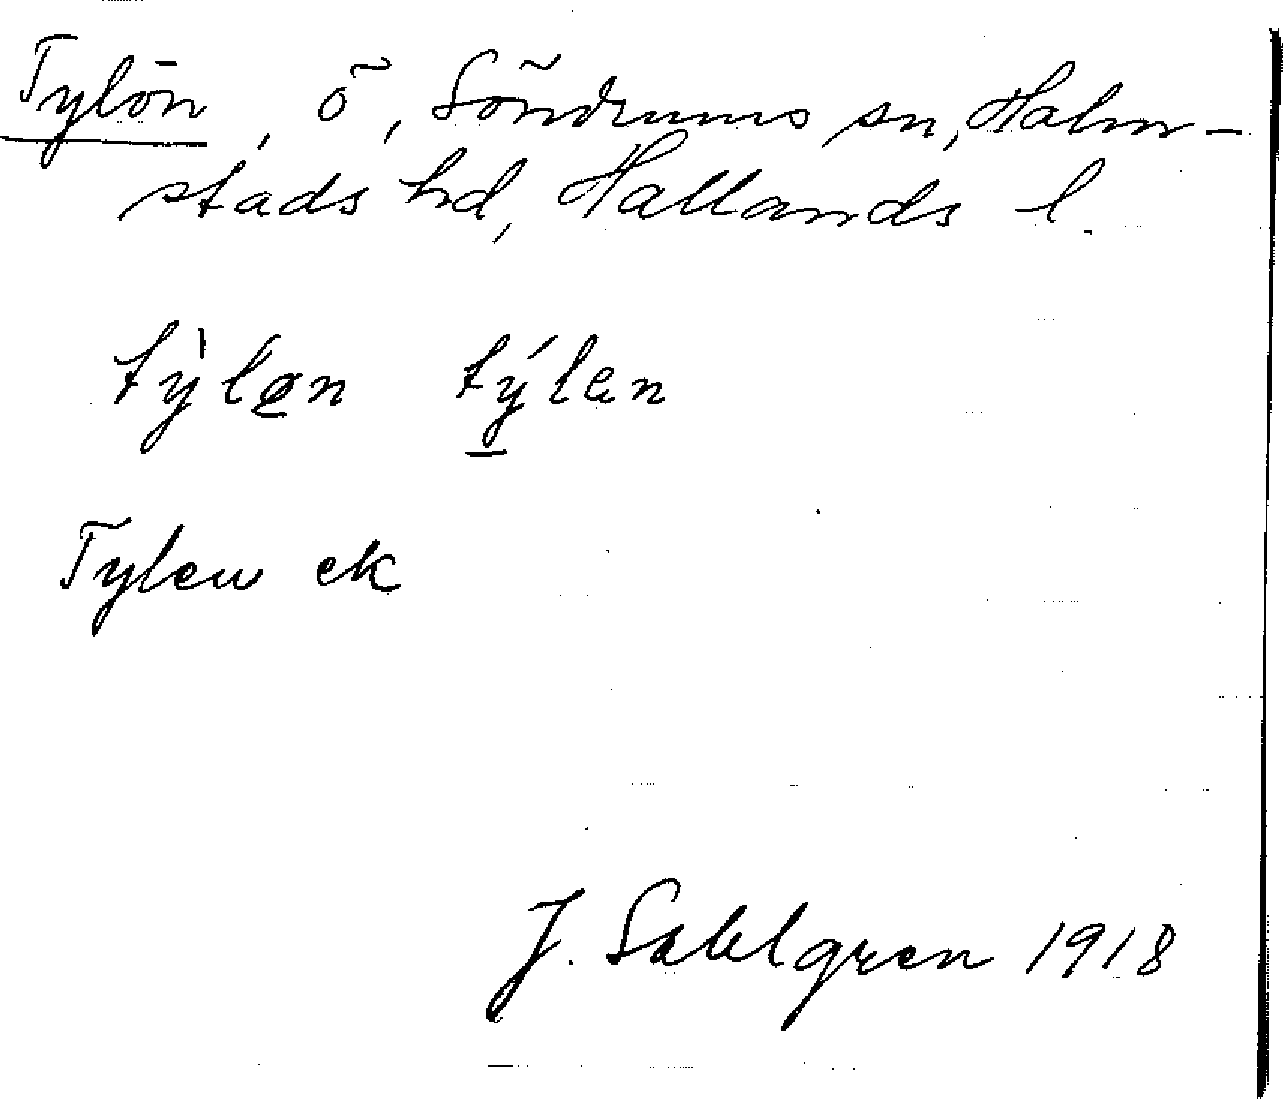 Tylön, ö, Söndrums sn, Halm-
stads hd, Hallands l.
tỳlən týlen
Tylen ek
J. Sahlgren 1918